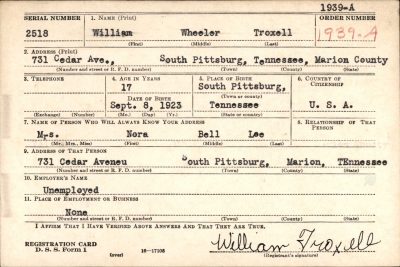 1939-A
SERIAL NUMBER 1. NAME (Print) ORDER NUMBER
2518 William Wheeler Troxell 1939-A
(First) (Middle) (Last)
2. ADDRESS (Print)
731 Cedar Ave., South Pittsburg, Tennessee, Marion County
(Number and street or R. F. D. number) (Town) (County) (State)
3. TELEPHONE 4. AGE IN YEARS 5. PLACE OF BIRTH 6. COUNTRY OF CITIZENSHIP
17 South Pittsburg,
DATE OF BIRTH (Town or county)
Sept. 8, 1923 Tennessee U. S. A.
(Exchange) (Number) (Mo.) (Day) (Yr.) (State or country)
7. NAME OF PERSON WHO WILL ALWAYS KNOW YOUR ADDRESS 8. RELATIONSHIP OF THAT PERSON
Mrs. Nora Bell Lee
(Mr., Mrs., Miss) (First) (Middle) (Last)
9. ADDRESS OF THAT PERSON
731 Cedar Aveneu South Pittsburg, Marion, TEnnessee
(Number and street or R. F. D. number) (Town) (County) (State)
10. EMPLOYER'S NAME
Unemployed
11. PLACE OF EMPLOYMENT OR BUSINESS
None
(Number and street or R. F. D. number) (Town) (County) (State)
I AFFIRM THAT I HAVE VERIFIED ABOVE ANSWERS AND THAT THEY ARE TRUE.
REGISTRATION CARD
D. S. S. Form 1 (over) 16-17105
William Troxell
(Registrant's signature)